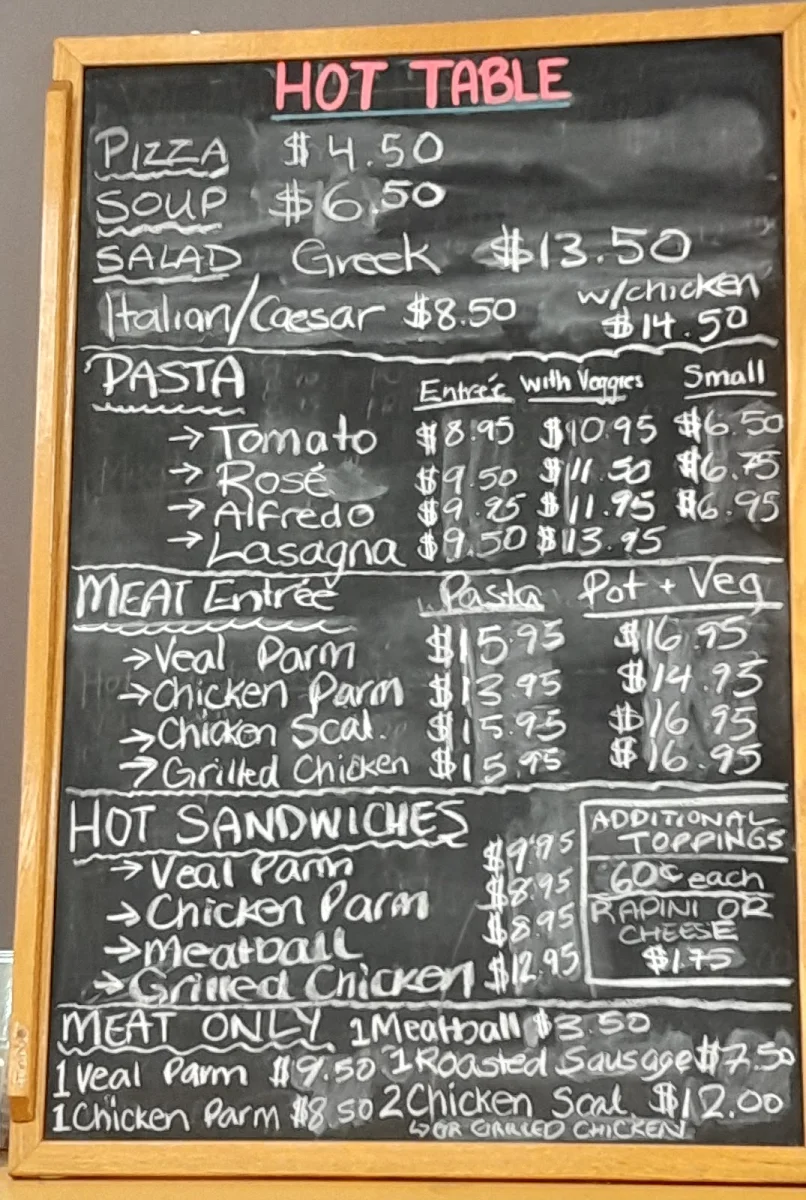 HOT TABLE
PIZZA $4.50
SOUP $6.50
SALAD Greek $13.50
Italian/Caesar $8.50 w/chicken $14.50
PASTA Entrée with Veggies Small
→ Tomato $8.95 $10.95 $6.50
→ Rosé $9.50 $11.50 $6.75
→ Alfredo $9.95 $11.95 $6.95
→ Lasagna $9.50 $13.95
MEAT Entrée Pasta Pot + Veg
→ Veal Parm $15.95 $16.95
→ Chicken Parm $13.95 $14.95
→ Chicken Scal. $15.95 $16.95
→ Grilled Chicken $15.95 $16.95
HOT SANDWICHES
→ Veal Parm $9.95
→ Chicken Parm $8.95
→ Meatball $8.95
→ Grilled Chicken $12.95
ADDITIONAL
TOPPINGS
60¢ each
RAPINI OR
CHEESE
$1.75
MEAT ONLY 1 Meatball $3.50
1 Veal Parm $9.50 1 Roasted Sausage $7.50
1 Chicken Parm $8.50 2 Chicken Scal. $12.00
↳ OR GRILLED CHICKEN